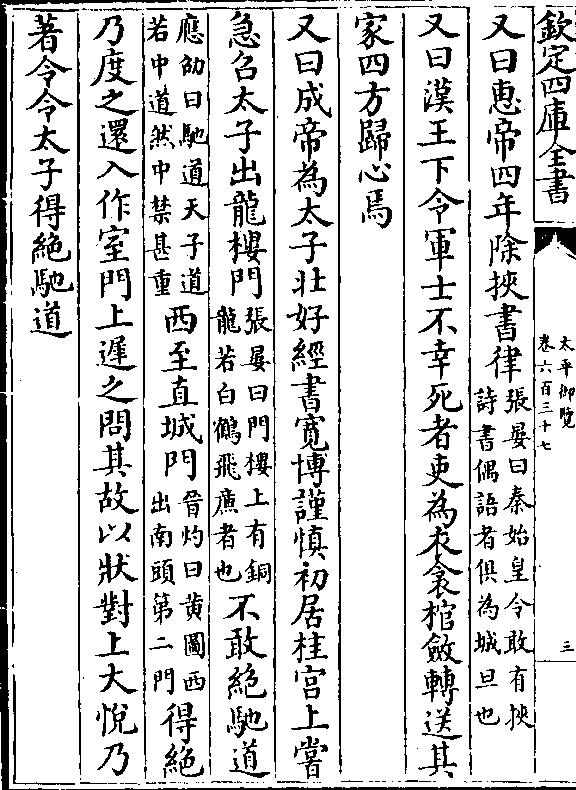 欽定四庫全書
太平御覽
卷六百三十七
三
又曰惠帝四年除挾書律張晏曰秦始皇令敢有挾
詩書偶語者俱為城旦也
又曰漢王下令軍士不幸死者吏為衣衾棺斂轉送其
家四方歸心焉
又曰成帝為太子壮好經書寛博謹慎初居桂宫上嘗
急召太子出龍樓門張晏曰門樓上有銅
龍若白鶴飛廉者也不敢絶馳道
應劭曰馳道天子道
若中道然中禁甚重西至直城門晉灼曰黄圖西
出南頭第二門得絶
乃度之還入作室門上遲之問其故以狀對上大悅乃
著令令太子得絶馳道